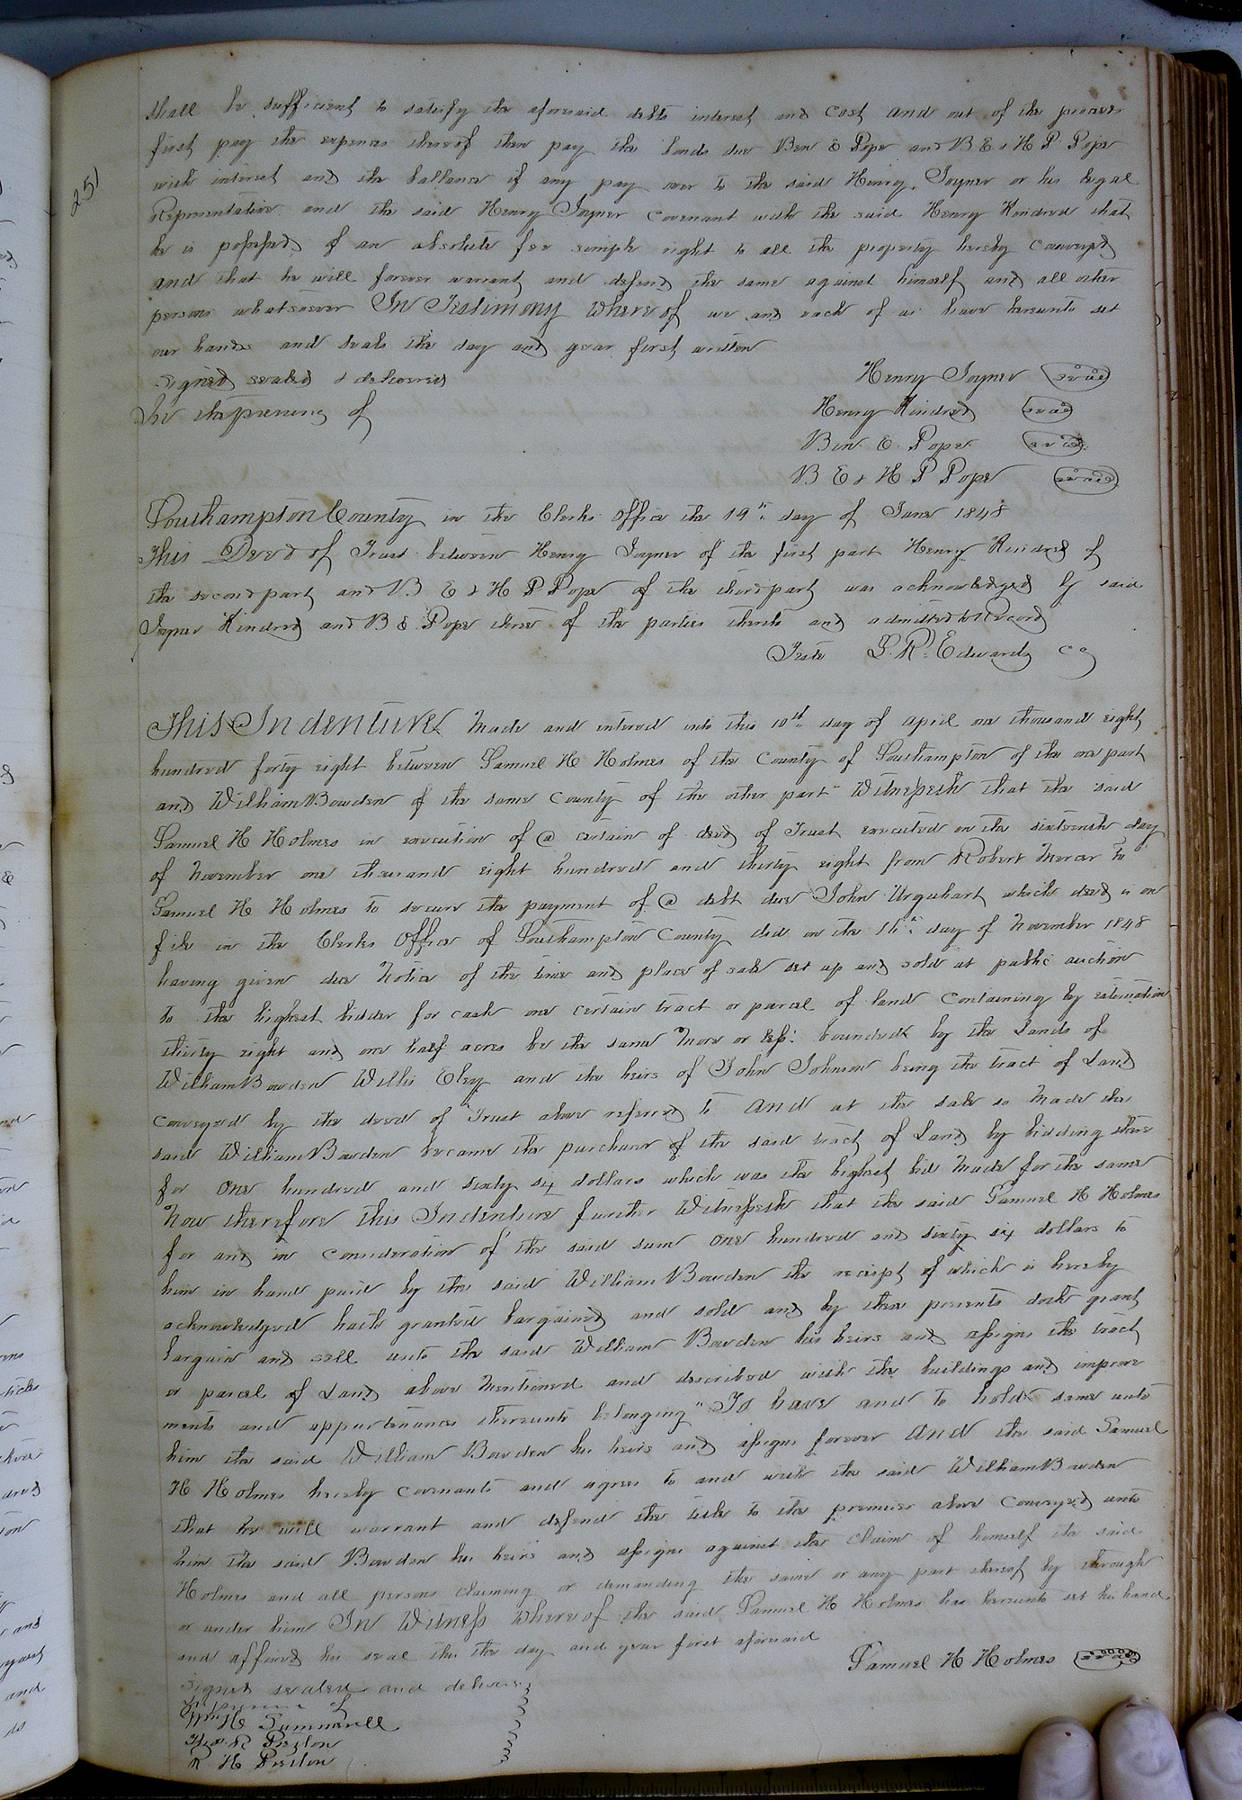 251
shall be sufficient to satisfy the aforesaid debts interest and cost and out of the proceeds
first pay the expenses thereof then pay the bonds due Ben E Pope and B E & H P Pope
with interest and the ballance if any pay over to the said Henry Joyner or his legal
Representative and the said Henry Joyner covenant with the said Henry Kindred that
he is possessed of an absolute fee simple right to all the property hereby conveyed
and that he will forever warrant and defend the same against himself and all other
persons whatsoever In Testimony Whereof we and each of us have hereunto set
our hands and seals the day and year first written
signed sealed & delivered
in the presence of
Henry Joyner seal
Henry Kindred seal
Ben E Pope seal
B E & H P Pope seal
Southampton County in the Clerks Office the 19th day of June 1848
This Deed of Trust between Henry Joyner of the first part Henry Kindred of
the second part and B E & H P Pope of the third part was acknowledged by said
Joyner Kindred and B E Pope three of the parties thereto and admitted to Record
Teste L. R. Edwards CC
This Indenture Made and entered into this 10th day of april one thousand eight
hundred forty eight between Samuel H Holmes of the County of Southampton of the one part
and William Bowden of the same county of the other part Witnesseth that the said
Samuel H Holmes in execution of @ certain of deed of Trust executed on the sixteenth day
of November one thousand eight hundred and thirty eight from Robert Mercer to
Samuel H Holmes to secure the payment of @ debt due John Urquhart which deed is on
file in the Clerks Office of Southampton County did on the 16th day of November 1848
having given due Notice of the time and place of sale set up and sold at public auction
to the highest bidder for cash one certain tract or parcel of land Containing by estimation
thirty eight and one half acres be the same More or less: bounded by the Lands of
William Bowden Willis Eley and the heirs of John Johnson being the tract of Land
conveyed by the deed of Trust above refered to And at the sale so Made the
said William Bowden became the purchaser of the said tract of Land by bidding there
for One hundred and sixty six dollars which was the highest bid Made for the same
Now therefore this Indenture further Witnesseth that the said Samuel H Holmes
for and in consideration of the said sum One hundred and sixty six dollars to
him in hand paid by the said William Bowden the receipt of which is hereby
acknowledged hath granted bargained and sold and by these presents doth grant
bargain and sell unto the said William Bowden his heirs and assigns the tract
or parcel of Land above Mentioned and described with the buildings and improve
ments and appurtenances thereunto belonging" To have and to hold same unto
him the said William Bowden his heirs and assigns forever And the said Samuel
H Holmes hereby covenants and agrees to and with the said William Bowden
that he will warrant and defend the title to the premises above Conveyed unto
him the said Bowden his heirs and assigns against the Claim of himself the said
Holmes and all persons claiming or demanding the same or any part thereof by through
or under him In Witness Whereof the said Samuel H Holmes has hereunto set his hand
and affixed his seal this the day and year first aforesaid
Samuel H Holmes seal
signed sealed and delivered
in presence of
Wm H Summerell
R Pretlow
R H Pretlow